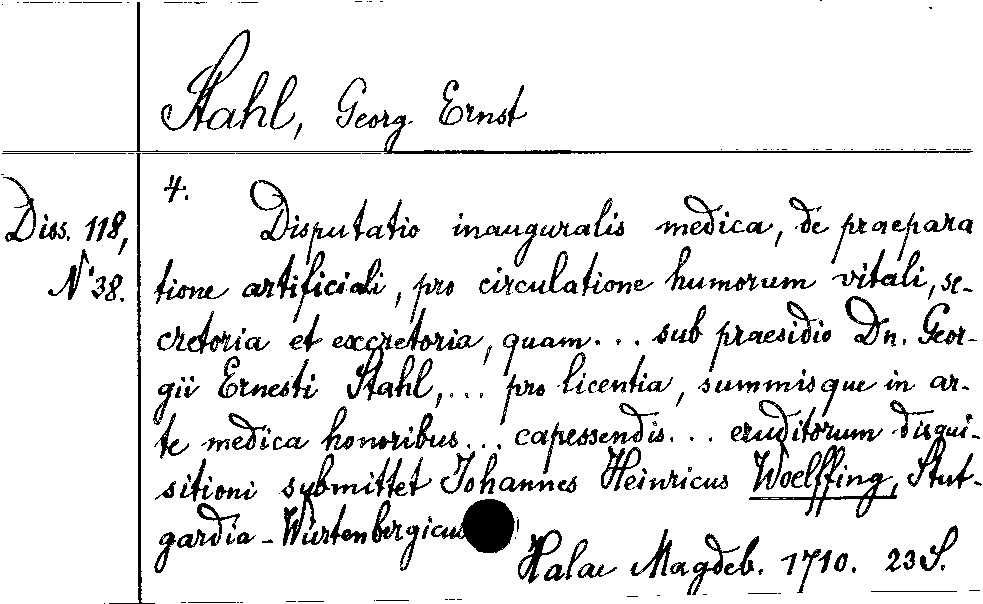 Stahl, Georg Ernst
Diss. 118,
N° 38.
4.
Disputatio inauguralis medica, de praepara
tione artificiali, pro circulatione humorum vitali, se-
cretoria et excretoria, quam... sub praesidio Dn. Geor-
gii Ernesti Stahl,... pro licentia, summisque in ar-
te medica honoribus... capessendis... eruditorum disqui-
sitioni submittet Johannes Heinricus Woelffing, Stut-
gardia-Würtenbergicus
Halae Magdeb. 1710. 23 S.